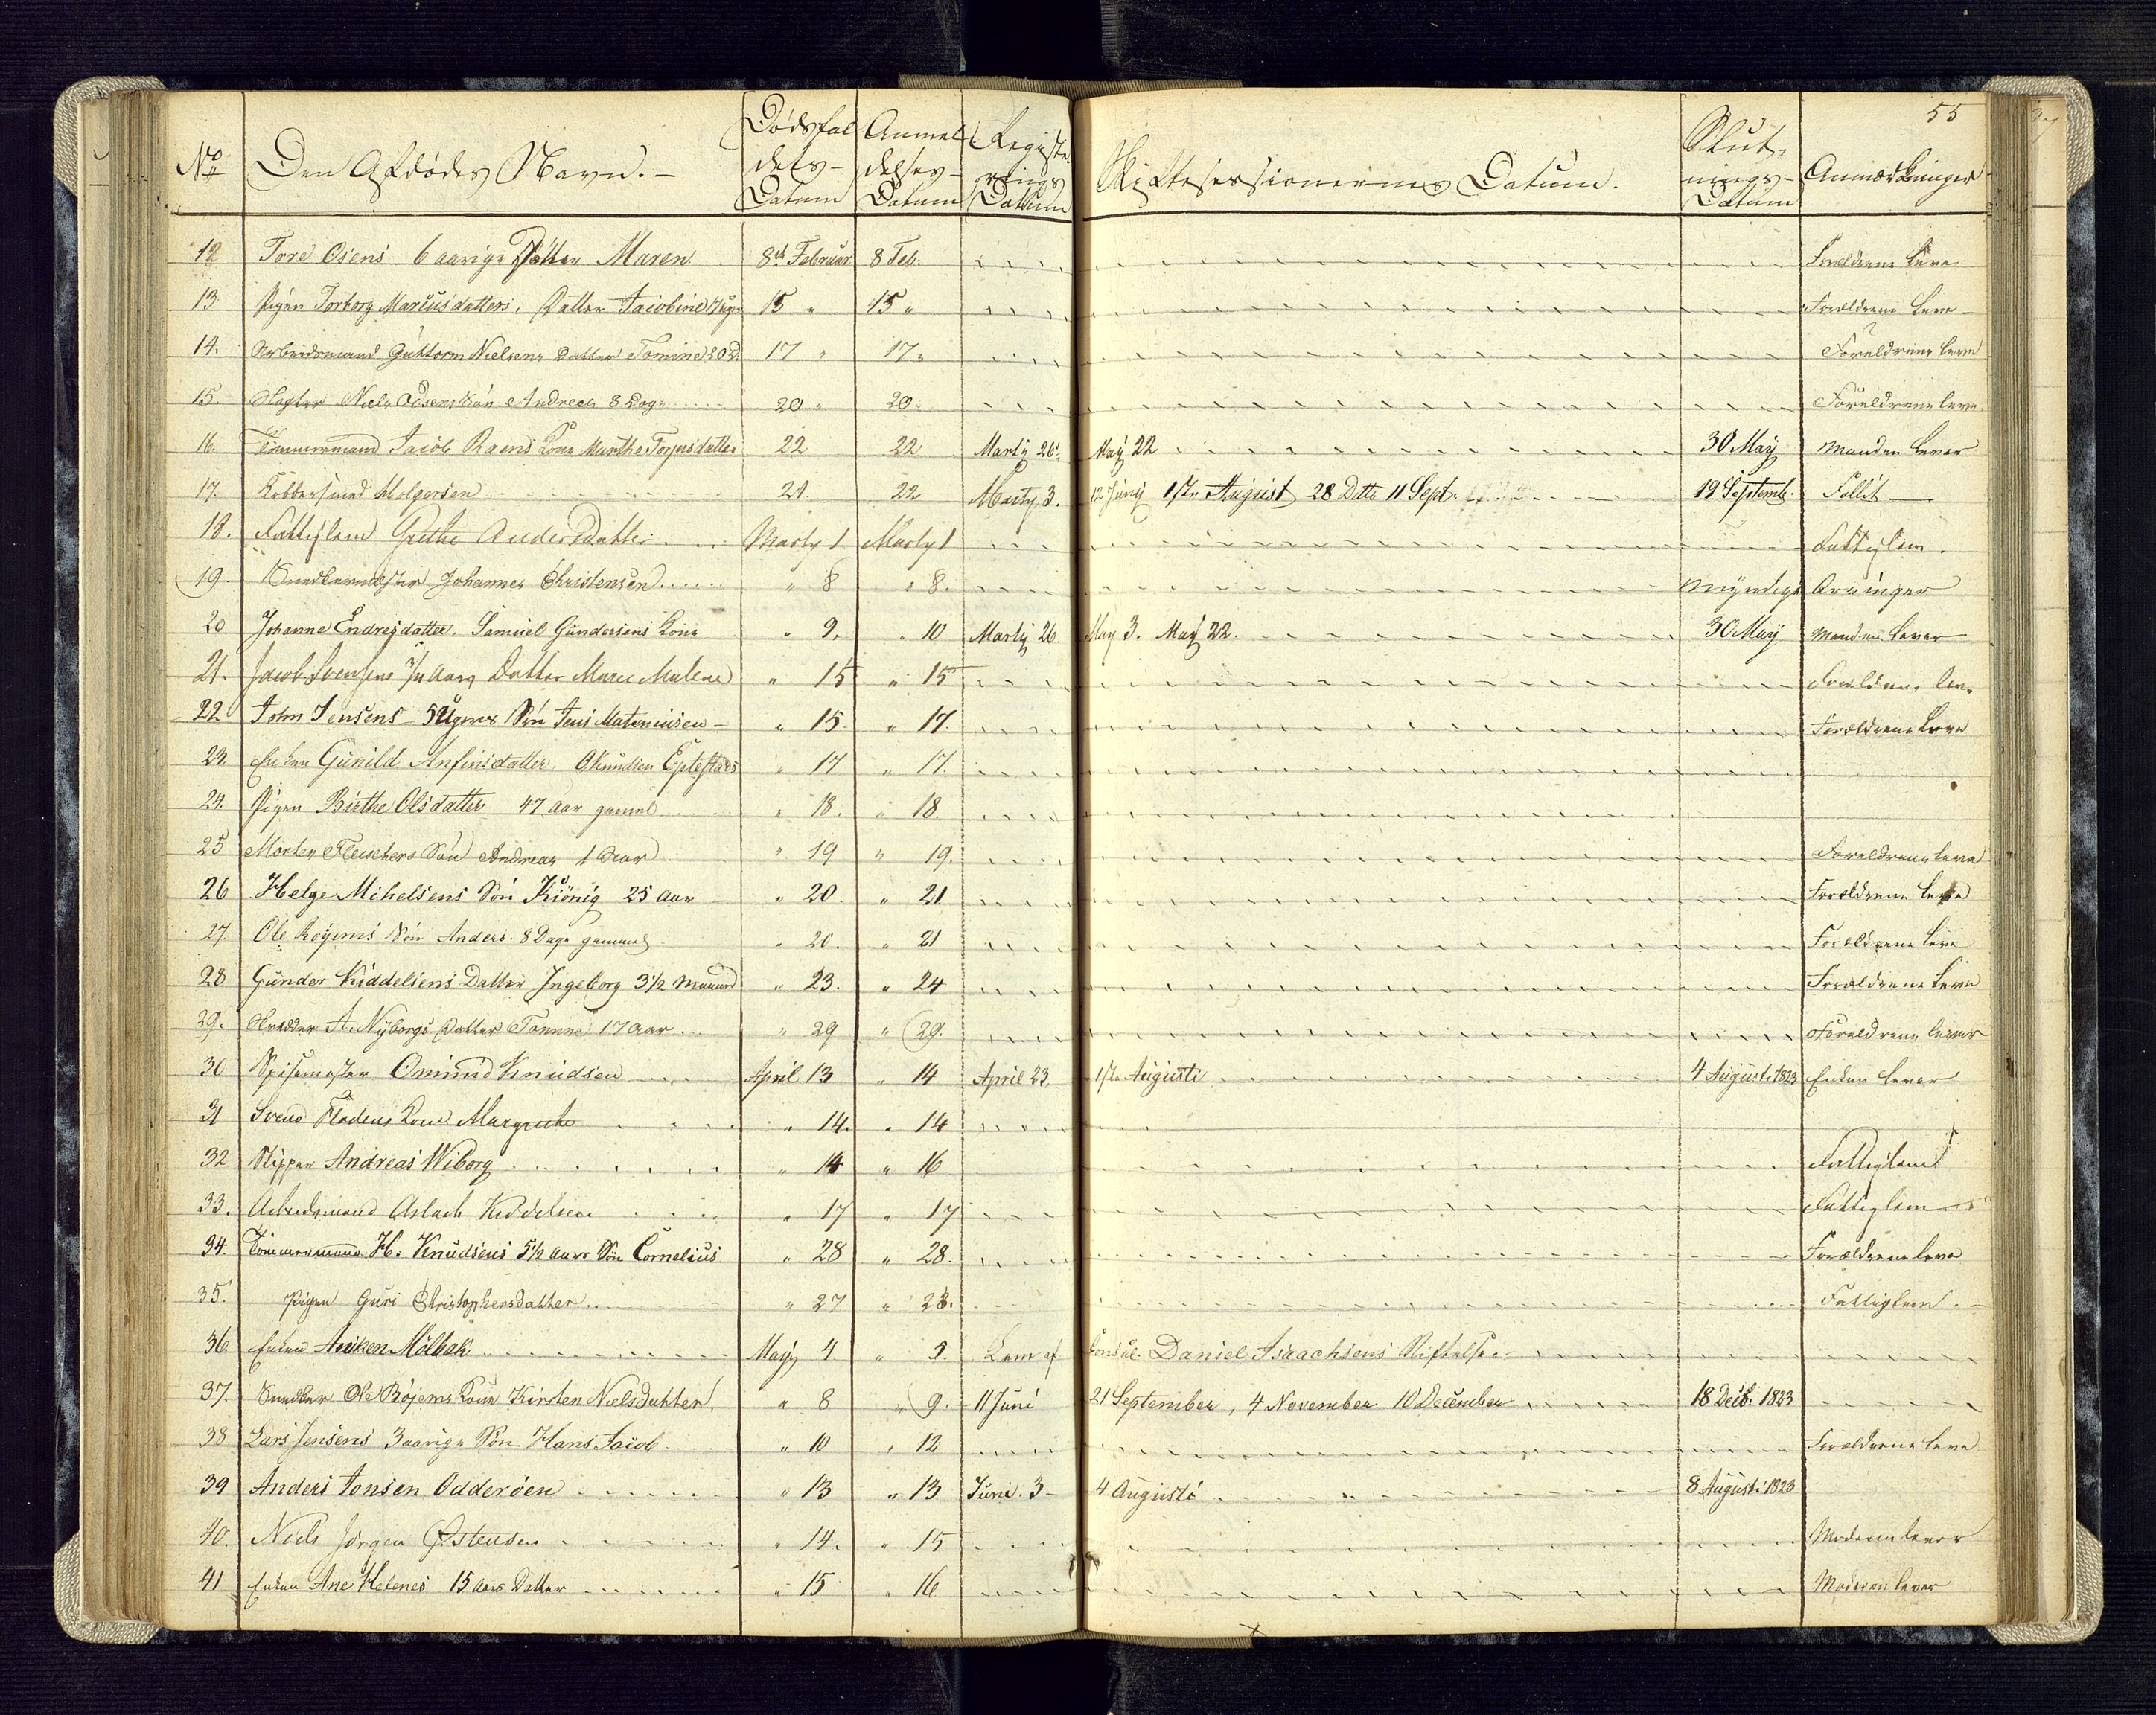 55
No Den Afdødes Navn. - Dødsfaldets- Datum Anmeldelses- Datum Registrerings Datum Skiftesessionernes Datum. Slutnings- Datum Anmærkninger
12 Tore Osens 6 aarige Datter Maren 8de Februar 8 Feb. Forældrene leve
13 Pigen Torborg Marcusdatters, Datter Jacobine 15 " 15 " Forældrene leve -
14. Arbeidsmand Guttorm Nielsens Datter Tomine 20 D. 17 " 17 " Forældrene leve
15. Niels Olsens Søn Andreas 8 Dage 20 " 20 " Forældrene leve.
16. Tømmermand Jacob Kone Marthe Torjusdatter 22 22 Marty 26 May 22 30 May Manden lever
17. Kobbersmed Holgersen 21. 22 Marty 3. 12 Junij 1ste August 28 Dito 11 Sept. 19 Septemb. Fallit -
18. Fattiglem Grethe Andersdatter Marty 1 Marty 1 Fattiglem.
19 Snedkermester Johannes Christensen " 8 " 8. Myndige Arvinger
20 Johanne Endresdatter. Samuel Gundersens Kone " 9. " 10 Marty 26 May 3. May 22. 30 May Manden lever
21. Jacob Svensens Aars Datter Maren Malene " 15 " 15 Forældrene leve
22 John Jensens 5 Ugers Søn Jens " 15. " 17. Forældrene leve
23. Enken Gunild Anfinsdatter. " 17 " 17.
24. Pigen Birthe Olsdatter 47 Aar gammel " 18. " 18.
25 Morten Fleischers Søn Andreas 1 Aar " 19 " 19. Forældrene leve
26 Helge Mikelsens Søn Kiönig 25 Aar " 20. " 21 Forældrene leve
27. Ole Røyems Søn Anders 8 Dage gammel " 20. " 21 Forældrene leve
28 Gunder Kiddelsens Datter Ingeborg 3 1/2 Maaned " 23. " 24 Forældrene leve
29. Skrædder A. Nyborgs Datter Tomine 17 Aar " 29 " 29. Forældrene lever
30 Omund Knudsen April 13 " 14 April 23 1ste Augusti 4 August 1823 Enken lever
31 Svend Flodens Kone Margrethe " 14. " 14
32 Skipper Andreas Wiborg " 14 " 16 Fattiglem
33. Arbeidsmand Aslach Keddelsen " 17 " 17 Fattiglem
34. Tømmermand H. Knudsens 5 1/2 Aars Søn Cornelius " 28 " 28. Forældrene leve
35. Pigen Guri Christophersdatter " 27 " 28. Fattiglem. -
36. Enken Anken Mölbak Mayj 4 " 5. Lem af Consul Daniel Isaachsens Stiftelse
37. Snedker Ole Røjems Kone Kirsten Nielsdatter. " 8 " 9. 11 Juni 21 September, 4 November 10 December 18 Decb. 1823
38 Lars Jensens 3 aarige Søn Hans Jacob " 10 " 12 Forældrene leve
39 Anders Jonsen Odderöen " 13 " 13 Juni 3 - 4 Augusti 8 August 1823
40. Niels Jörgen Østensen " 14. " 15 Moderen lever
41 Enken Ane Helenes 15 Aars Datter " 15 " 16 Moderen lever